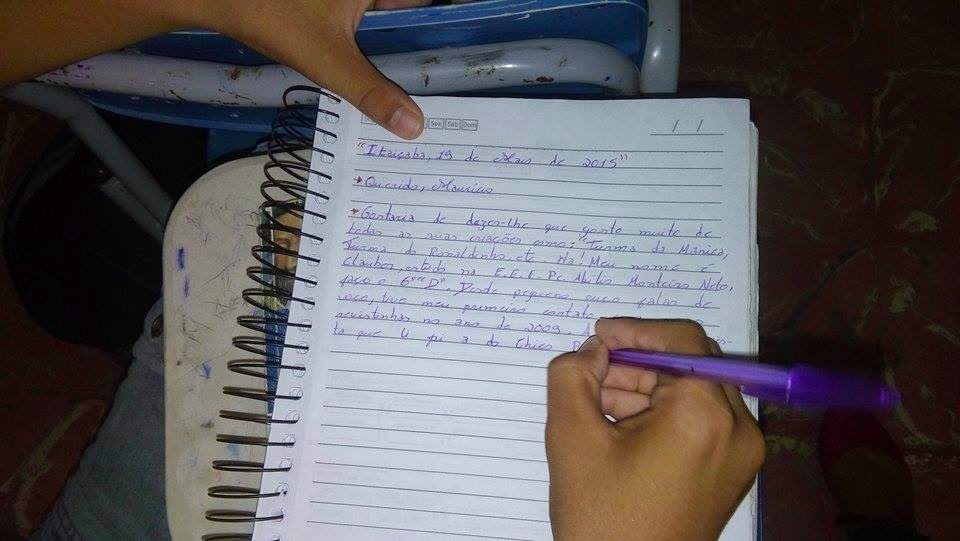 Sex Sáb Dom
/ /
"Itaiçaba, 19 de Maio de 2015"
Querido, Mauricio
Gostaria de dizer-lhe que gosto muito de
todas as suas criações como: "Turma da Mônica,
Turma do Ronaldinho, etc. Meu nome é
Clauber, estudo na E.E.F Pe. Abílio Monteiro Neto,
faço o 6º "D". Desde pequeno ouço falar de
você, tive meu primeiro contato
revistinhas no ano de 2009. A
ta que li foi a do Chico B